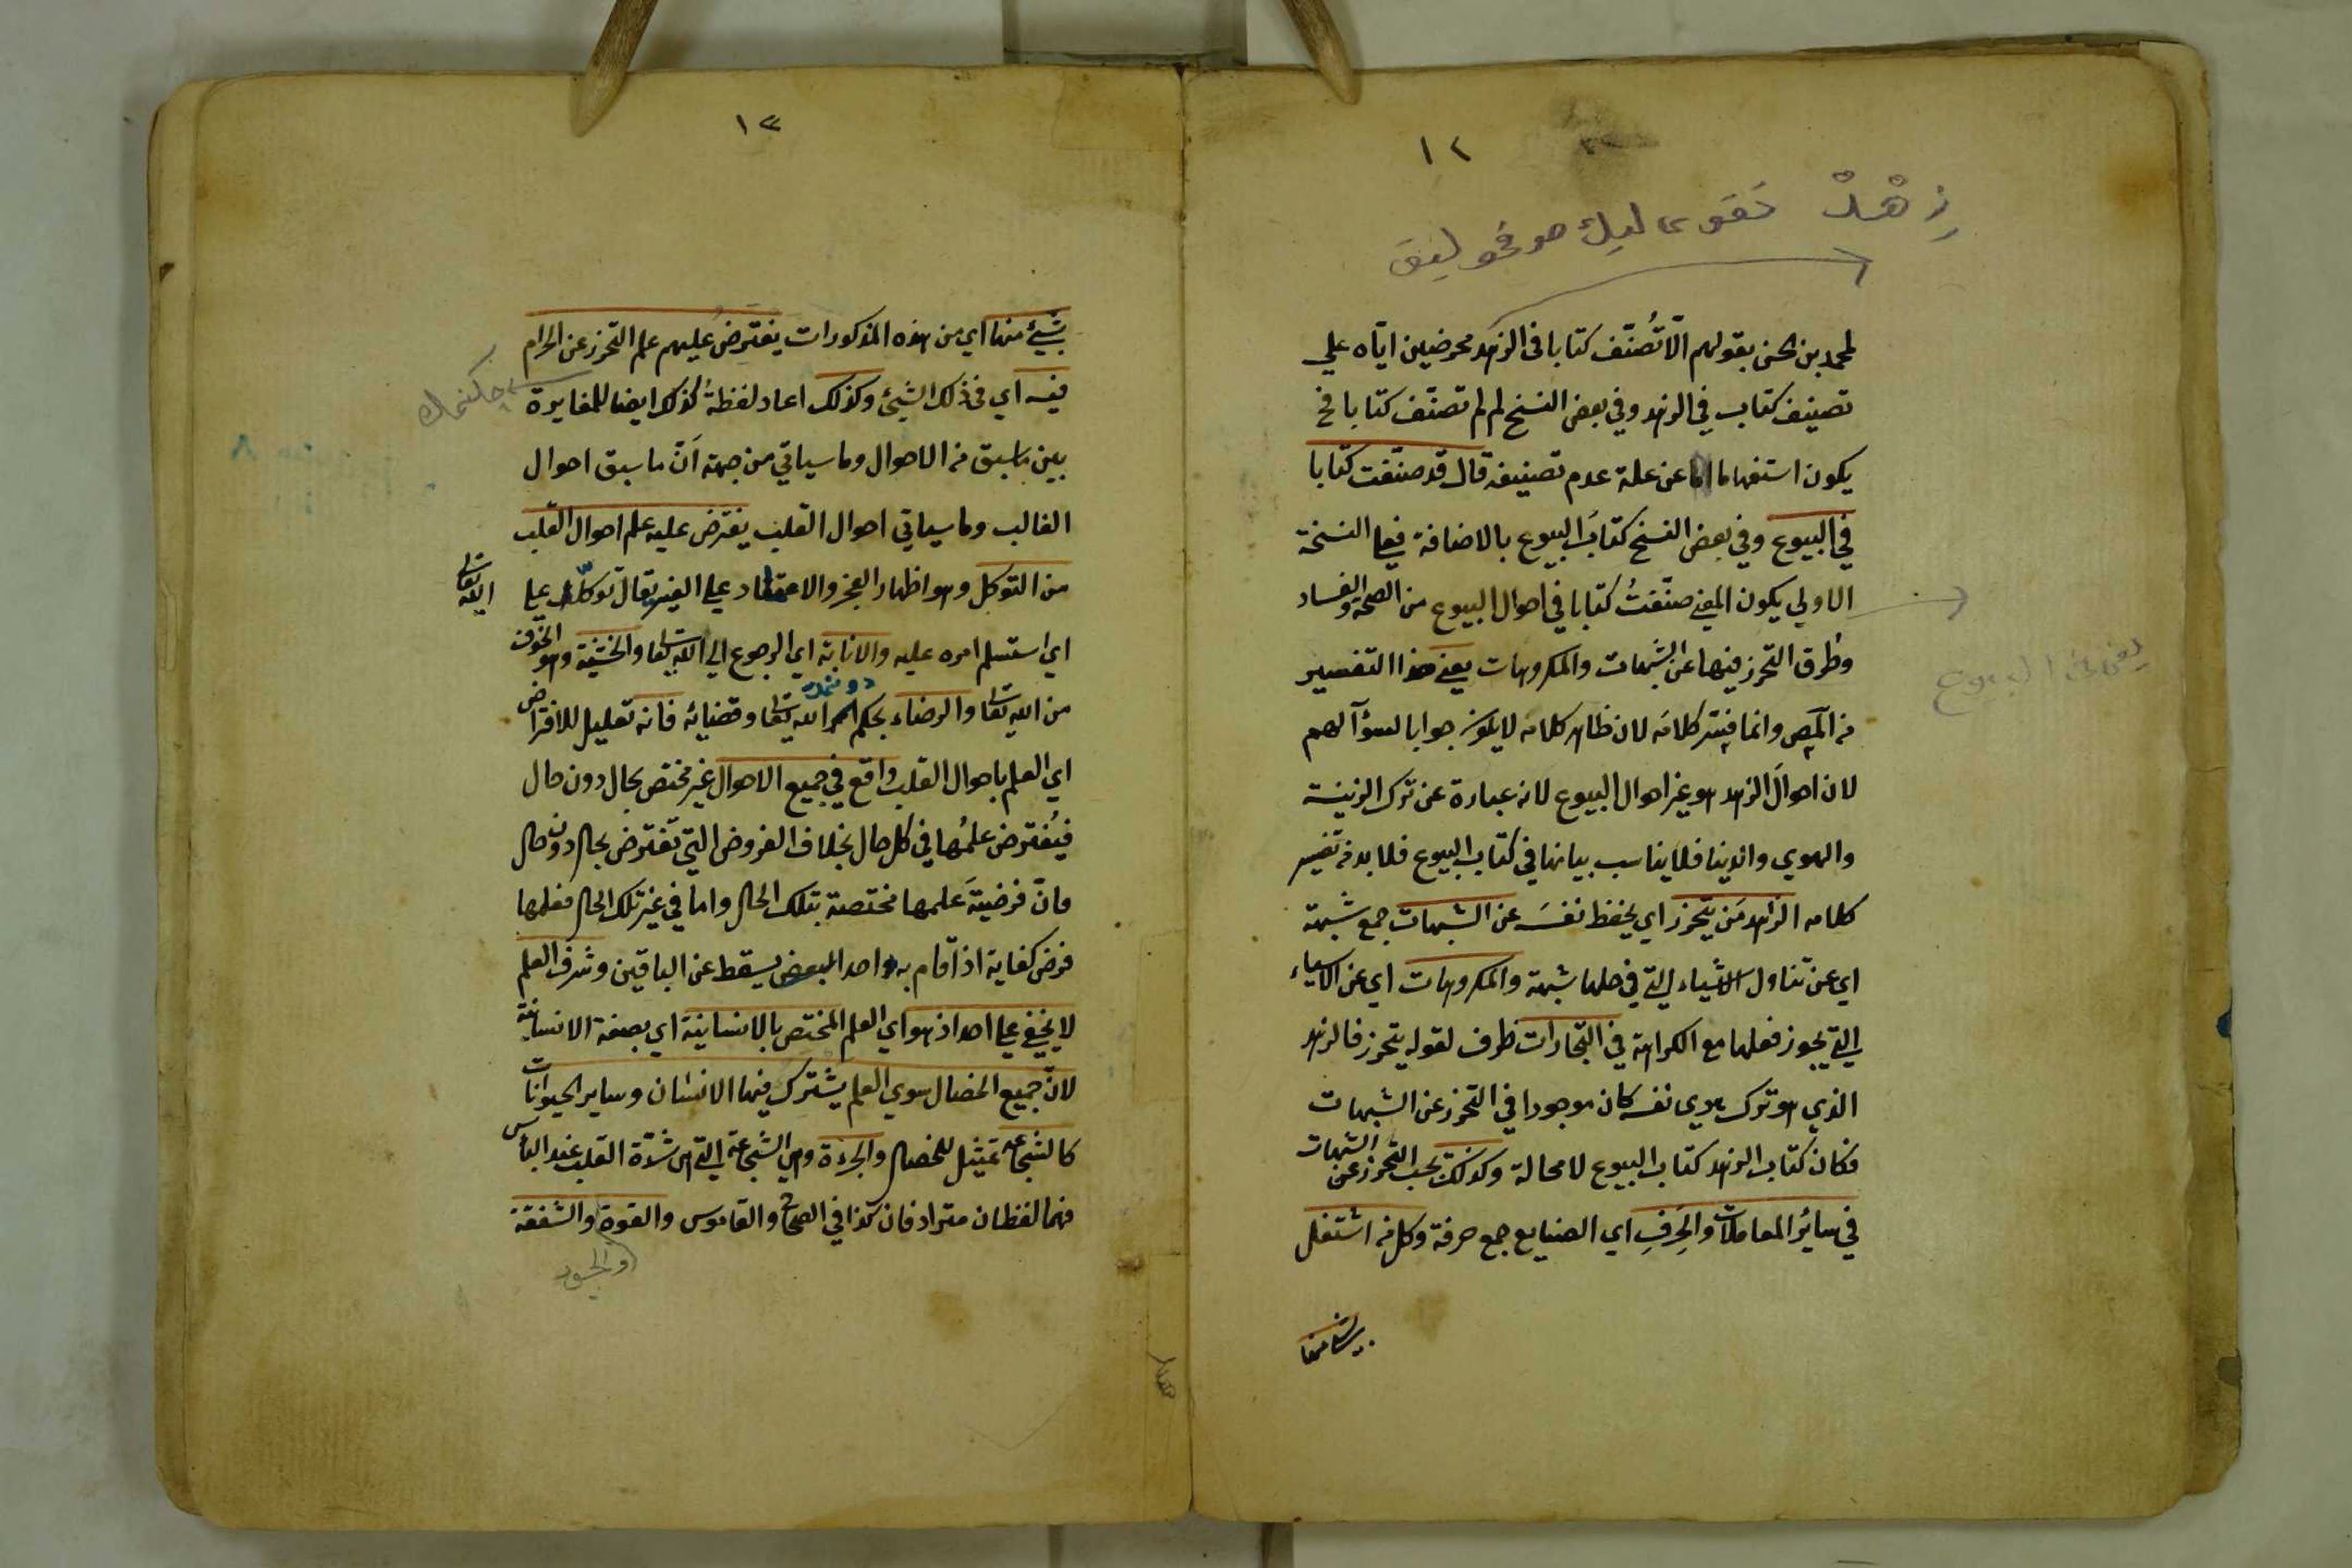 ١٢
زهْدْ تقوى لیك صوفیولیق
لمحمد بن الحسن بقولهم الّا تُصنّف كتابا في الزهد محرضين ايّاه علي
تصنيف كتاب في الزهد وفي بعض النسخ لم لم تصنّف كتابا فح
يكون استفهاما عن علة عدم تصنيفه قال قد صنّفت كتابا
في البيوع وفي بعض النسخ كتابَ البيوع بالاضافة فعلي النسخة
الاولي يكون المعني صنّفتُ كتابا في احوال البيوع من الصحة والفساد
وطرق التحرز فيها عن الشبهات والمكروهات يعني هذا التفسير
من المص وانما فسّر كلامَه لان ظاهر كلامه لا يكون جوابا لسؤالهم
لان احوالَ الزهد هو غير احوال البيوع لانه عبارة عن ترك الزينة
والهوي والدنيا فلا يناسب بيانها في كتاب البيوع فلا بد من تفسير
كلامه الزاهد مَن يتحرز اي يحفظ نفسَه عن الشبهات جمع شبهة
اي عن تناول الاشياء التي في حلها شبهة والمكروهات اي عن الاشياء
التي يجوز فعلها مع الكراهة في التجارات ظرف لقوله يتحرز فالزهد
الذي هو ترك هوي نفسه كان موجودا في التحرز عن الشبهات
فكان كتاب الزهد كتاب البيوع لا محالة وكذلك يجب التحرز عن الشبهات
في سائر المعاملات والحِرَفِ اي الصنايع جمع حرفة وكل من اشتغل
بشئ منها
يعني في البيوع
١٣
بشئ منها اي من هذه المذكورات يفترضُ عليهم علم التحرز عن الحرام
فيه اي في ذلك الشئ وكذلك اعاد لفظةُ كذلك ايضا للمغايرة
چكنمك
بين ما سبق من الاحوال وما سيأتي من جهة اَنّ ما سبق احوال
القالب وما سيأتي احوال القلب يفترض عليه علم احوال القلب
من التوكل وهو اظهار العجز والاعتماد علي الغير يقال توكّل علي
الله تعا
اي استسلم امره عليه والانابة اي الرجوع الي الله تعا والخشية وهو الخوف
من الله تعا والرضاء بحكم الله تعا وقضائه فانه تعليل للافتراض
اي العلم باحوال القلب واقع في جميع الاحوال غير مختص بحال دون حال
فيُفترض علمُها في كل حال بخلاف الفروض التي تفترض بحال دون حال
فانّ فرضيةَ علمها مختصة بتلك الحال واما في غير تلك الحال فعلمها
فرض كفاية اذا قام به واحد البعض يسقط عن الباقين وشرف العلم
لا يخفي علي احد اذ هو اي العلم المختص بالانسانية اي بصفة الانسانية
لانّ جميع الخصال سوي العلم يشترك فيها الانسان وساير الحيوانات
كالشجاعة تمثيل للخصال والجرءة وهي الشجاعة التي هي شدّة القلب عند البأس
فهما لفظان مترادفان كذا في الصحاح والقاموس والقوة والشفقة
والجود